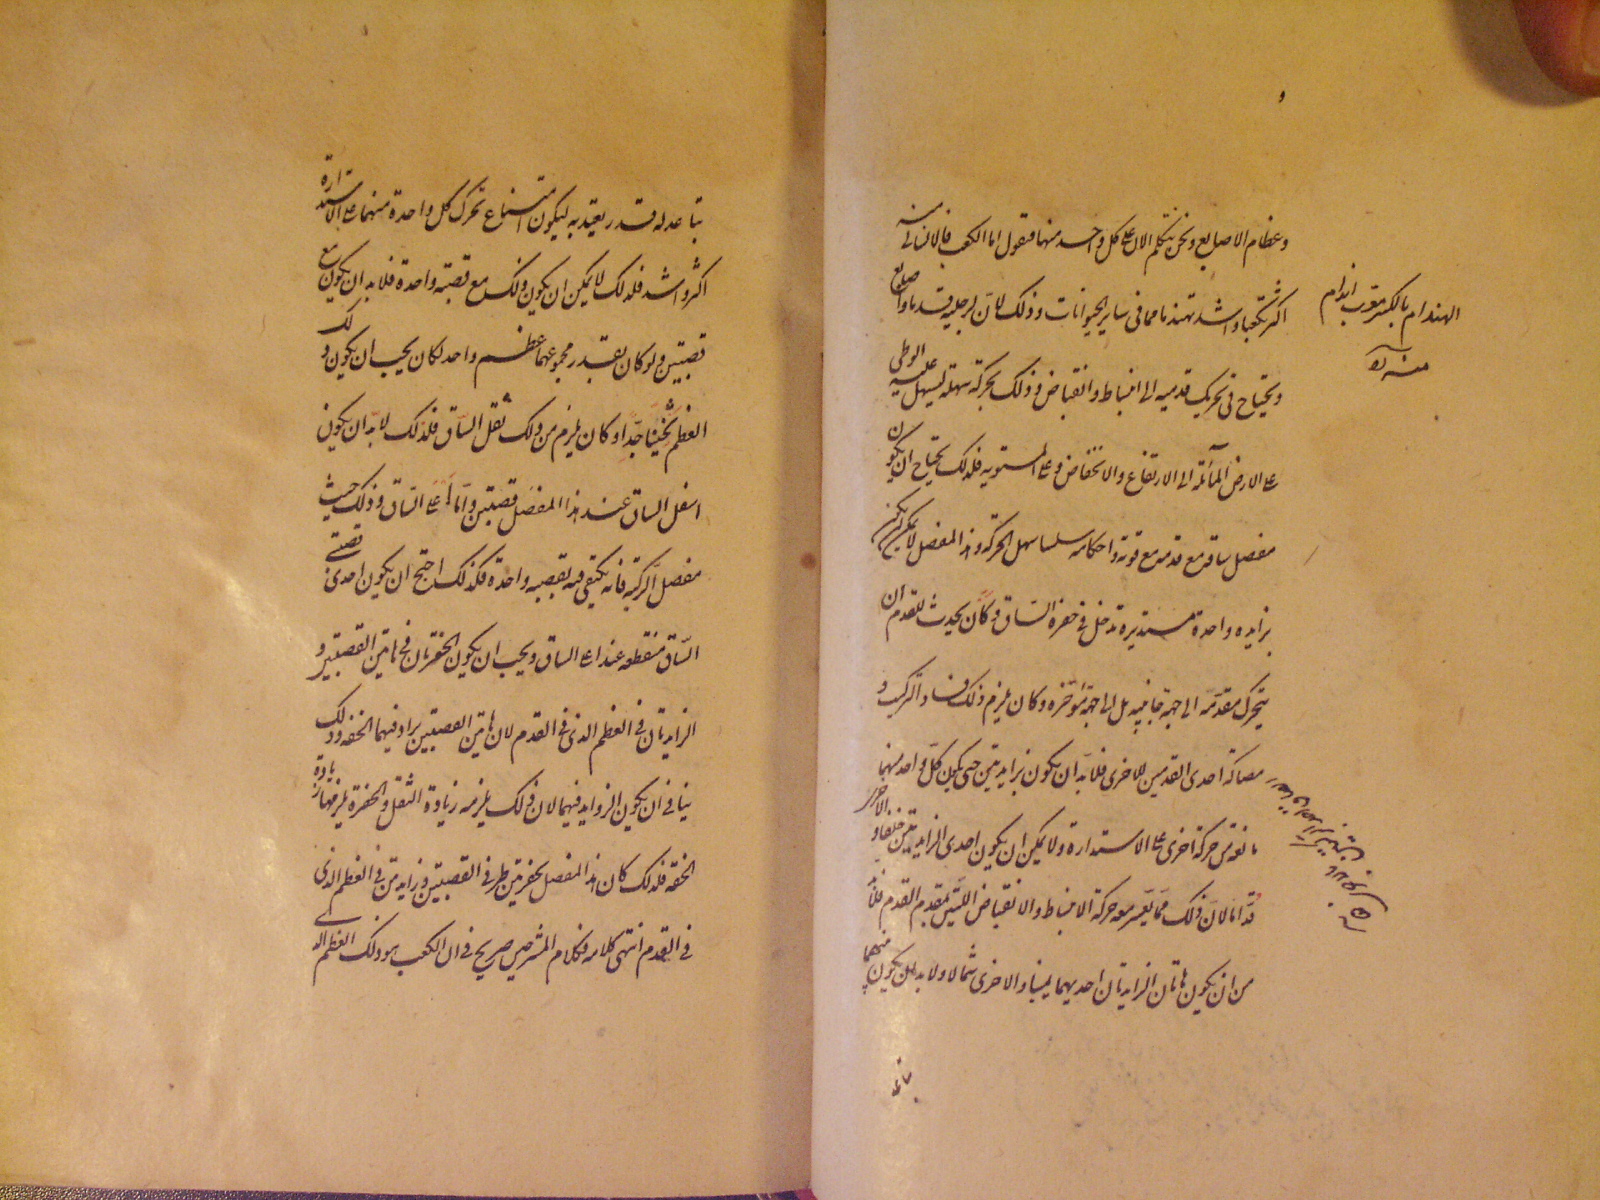 وعظام الاصابع ونحن نتكلم الان على كل واحد منها فنقول اما الكعب فالانسانى منه
اكثر تكعبا واشد تهندما مما فى ساير الحيوانات وذلك لان لرجليه قدما واصابع
ويحتاج فى تحريك قدميه الى انبساط وانقباض وذلك بحركة سهلة ليسهل عليه الوطى
على الارض المائلة الى الارتفاع والانخفاض وعلى المستويه فلذلك يحتاج ان يكون
مفصل ساقه مع قدمه مع قوته واحكامه سلسا سهل الحركة وهذا المفصل لا يمكن ان يكون
بزايده واحدة مستديرة تدخل فى حفرة الساق وكان يحدث للقدم ان
يتحرك مقدمه الى جهة جانبيه بل الى جهة مؤخره وكان يلزم ذلك فساد التركيب و
مصاكة احدى القدمين للاخرى فلا بد ان يكون بزايدتين حتى يكون كل واحد منهما
مانعة من حركة اخرى على الاستدارة ولا يمكن ان يكون احدى الزايدتين خلفا والاخرى
قداما لان ذلك مما يعسر معه حركة الانبساط والانقباض اللتين بمقدم القدم فلا بد
من ان يكون هاتان الزايدتان احديهما يمينا والاخرى شمالا ولا بد ان يكون بينهما
الهندام بالكسر معرب اندام
منه
تباعد له قدر يعتد به ليكون امتناع تحرك كل واحدة منهما على الاستدارة
اكثر واشد فلذلك لا يمكن ان يكون ذلك مع قصبة واحدة فلا بد ان يكون مع
قصبتين ولو كان بقدر مجموعهما عظم واحد لكان يجب ان يكون ذلك
العظم ثخينا جدا وكان يلزم من ذلك ثقل الساق فلذلك لا بد ان يكون
اسفل الساق عند هذا المفصل قصبتين واما اعلى الساق وذلك حيث
مفصل الركبة فانه يكتفى فيه بقصبه واحدة فلذلك احتيج ان يكون احدى قصبتى
الساق منقطعه عند اعلى الساق ويجب ان يكون الحفرتان فى هاتين القصبتين و
الزايدتان فى العظم الذى فى القدم لان هاتين القصبتين يراد فيهما الخفه وذلك
ينافى ان يكون الزوايد فيهما لان ذلك يلزمه زيادة الثقل والحفرة يلزمها زيادة
الخفه فلذلك كان هذا المفصل بحفرتين طرفى القصبتين وزايدتين فى العظم الذى
فى القدم انتهى كلامه فكلام المشرحين صريح فى ان الكعب هو ذلك العظم الذى